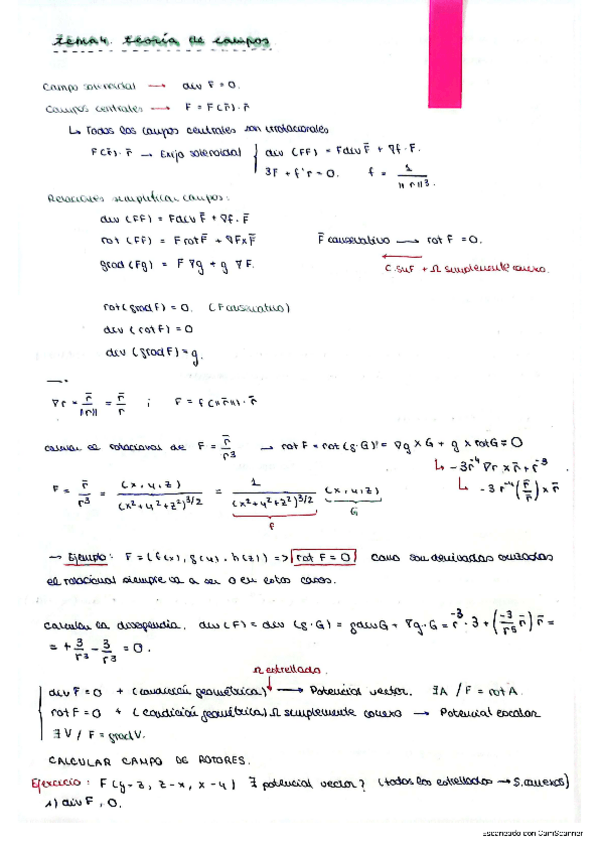 tema 4. teoría de campos.
Campo solenoidal → div F = 0.
Campos centrales → F = F(r̄)·r̄
↳ Todos los campos centrales son irrotacionales
F(r̄)·r̄ → Exijo solenoidal { div (fF) = F div F̄ + ∇f·F.
3F + f'r = 0. f = 1/||r||³.
Relaciones simplifican campos:
div (fF) = F div F̄ + ∇f·F̄
rot (fF) = F rot F̄ + ∇F×F̄ F̄ conservativo → rot F = 0.
grad (Fg) = F ∇g + g ∇F. ← C.suf + Ω simplemente conexo.
rot (grad F) = 0. (F conservativo)
div (rot F) = 0
div (grad F) = g.
∇r = r̄/||r|| = r̄/r ; F = f(||r̄||)·r̄
calcular el rotacional de F = r̄/r³ → rot F = rot (g·G) = ∇g × G + g × rot G = 0
↳ -3r⁻⁴ ∇r × r̄ + r⁻³
F = r̄/r³ = (x,y,z)/(x²+y²+z²)^3/2 = 1/(x²+y²+z²)^3/2 (x,y,z) ↳ -3r⁻⁴ (r̄/r) × r̄
f G
→ Ejemplo: F = (f(x), g(y), h(z)) => rot F = 0 como son derivadas cruzadas
el rotacional siempre va a ser 0 en estos casos.
calcular la divergencia. div(F) = div (g·G) = g div G + ∇g·G = r⁻³·3 + (-3/r⁵ r̄) r̄ =
= + 3/r³ - 3/r³ = 0.
Ω estrellado.
div F = 0 + (condición geométrica) → Potencial vector. ∃A / F = rot A.
rot F = 0 + (condición geométrica) Ω simplemente conexo → Potencial escalar
∃ V / F = grad V.
CALCULAR CAMPO DE ROTORES.
Ejercicio: F(y-z, z-x, x-y) ∃ potencial vector? (todos los estrellados → s.conexos)
1) div F, 0.
Escaneado con CamScanner